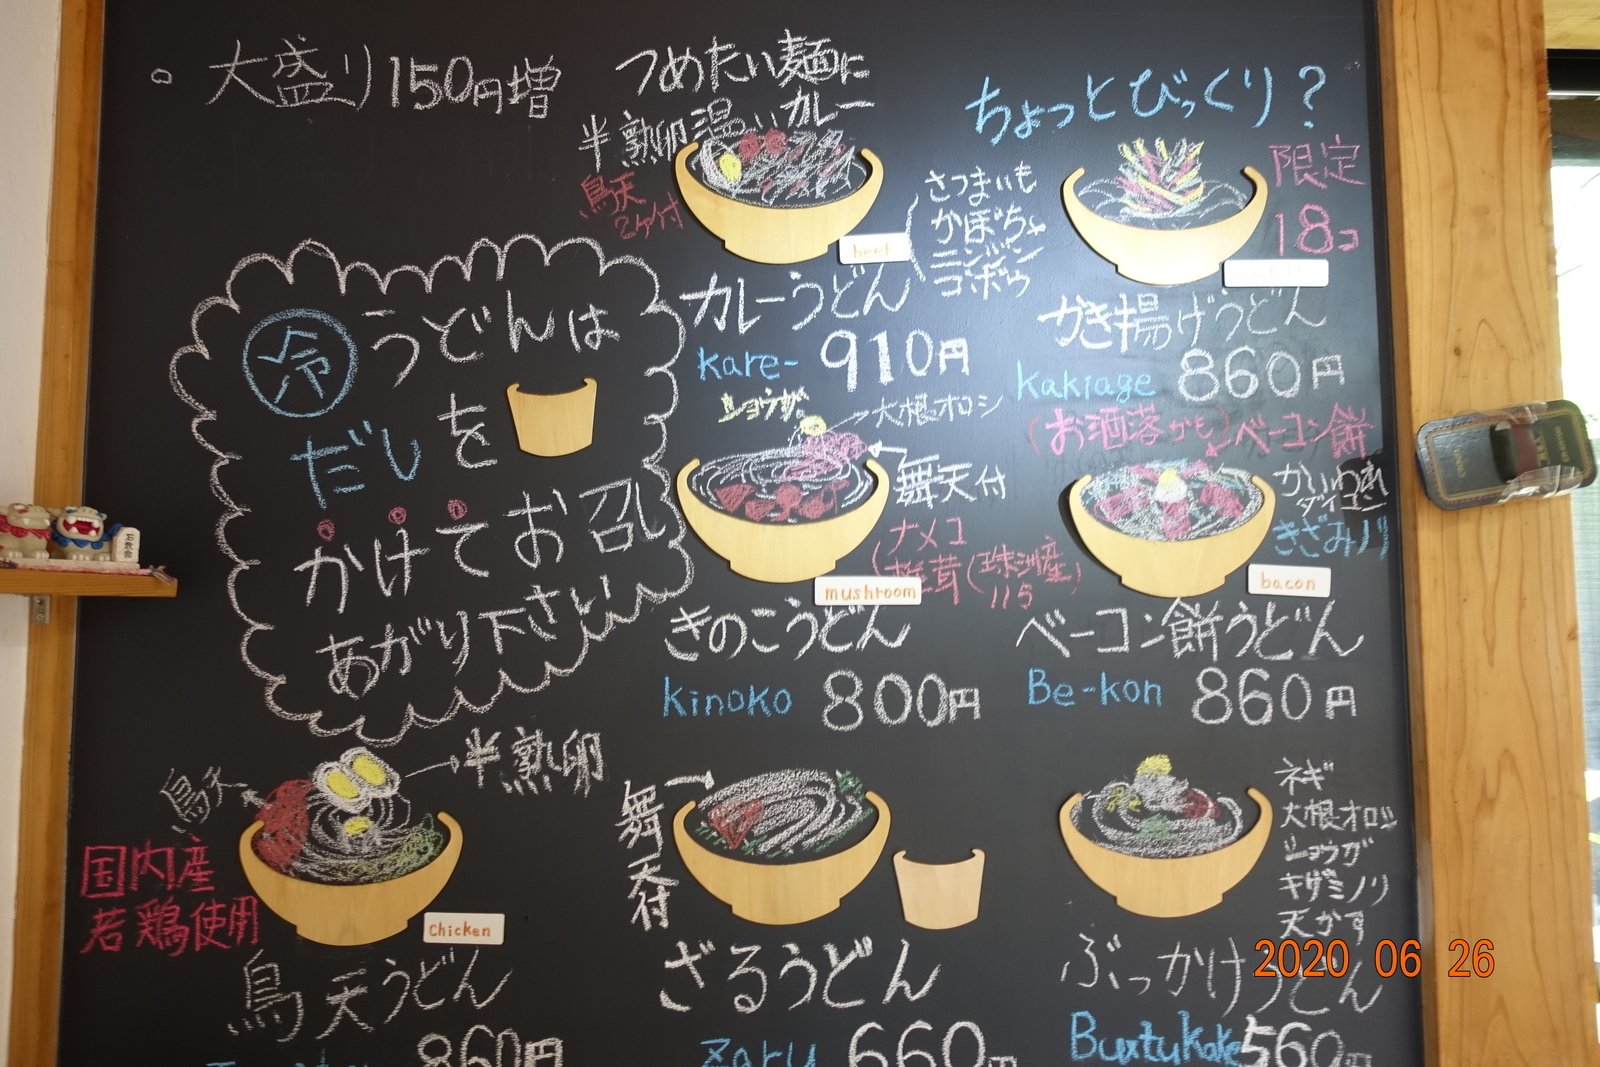 大盛り150円増
つめたい麺に
温いカレー
半熟卵
鳥天
2ケ付
beef
さつまいも
かぼちゃ
ニンジン
ゴボウ
カレーうどん
kare- 910円
ちょっとびっくり?
限定
18コ
かき揚げうどん
kakiage 860円
冷うどんは
だしを
かけてお召し
あがり下さい
ショウガ
大根オロシ
舞天付
ナメコ
椎茸(珠洲産)
115
mushroom
きのこうどん
kinoko 800円
(お洒落かも)ベーコン餅
かいわれ
ダイコン
きざみノリ
bacon
ベーコン餅うどん
Be-kon 860円
鳥天
半熟卵
国内産
若鶏使用
Chicken
鳥天うどん
860円
舞天付
ざるうどん
zaru 660円
ネギ
大根オロシ
ショウガ
キザミノリ
天かす
ぶっかけうどん
560円
2020 06 26